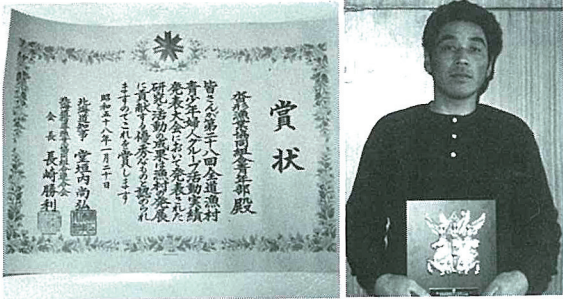 賞状
漁業協同組合青年部殿
皆さんが第二十八回全道漁村
青少年婦人グループ活動実績
発表大会において発表された
研究活動の成果は漁村の発展
に貢献する優秀なものと認められ
ますのでこれを賞します
昭和五十八年一月二十日
北海道知事 堂垣内尚弘
会長 長崎勝利